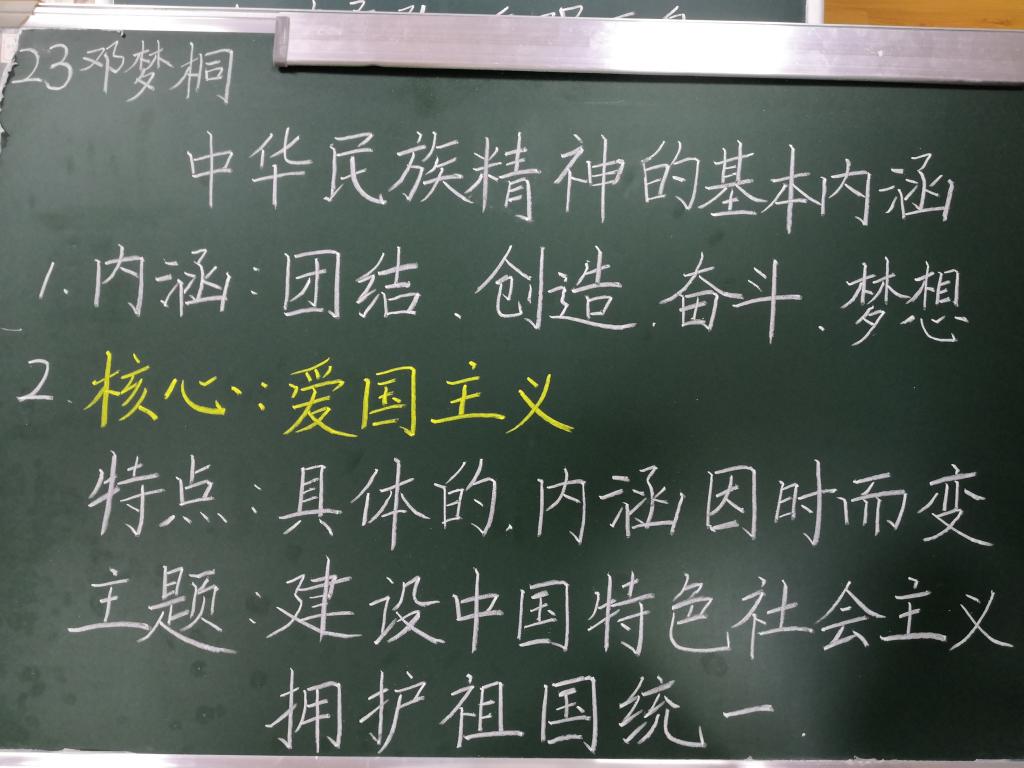 23邓梦桐
中华民族精神的基本内涵
1.内涵:团结、创造、奋斗、梦想
2.核心:爱国主义
特点:具体的、内涵因时而变
主题:建设中国特色社会主义
拥护祖国统一